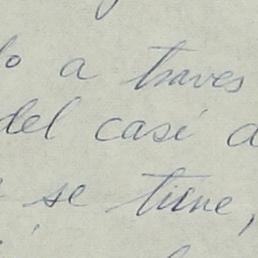 a traves
del casi
se tiene,